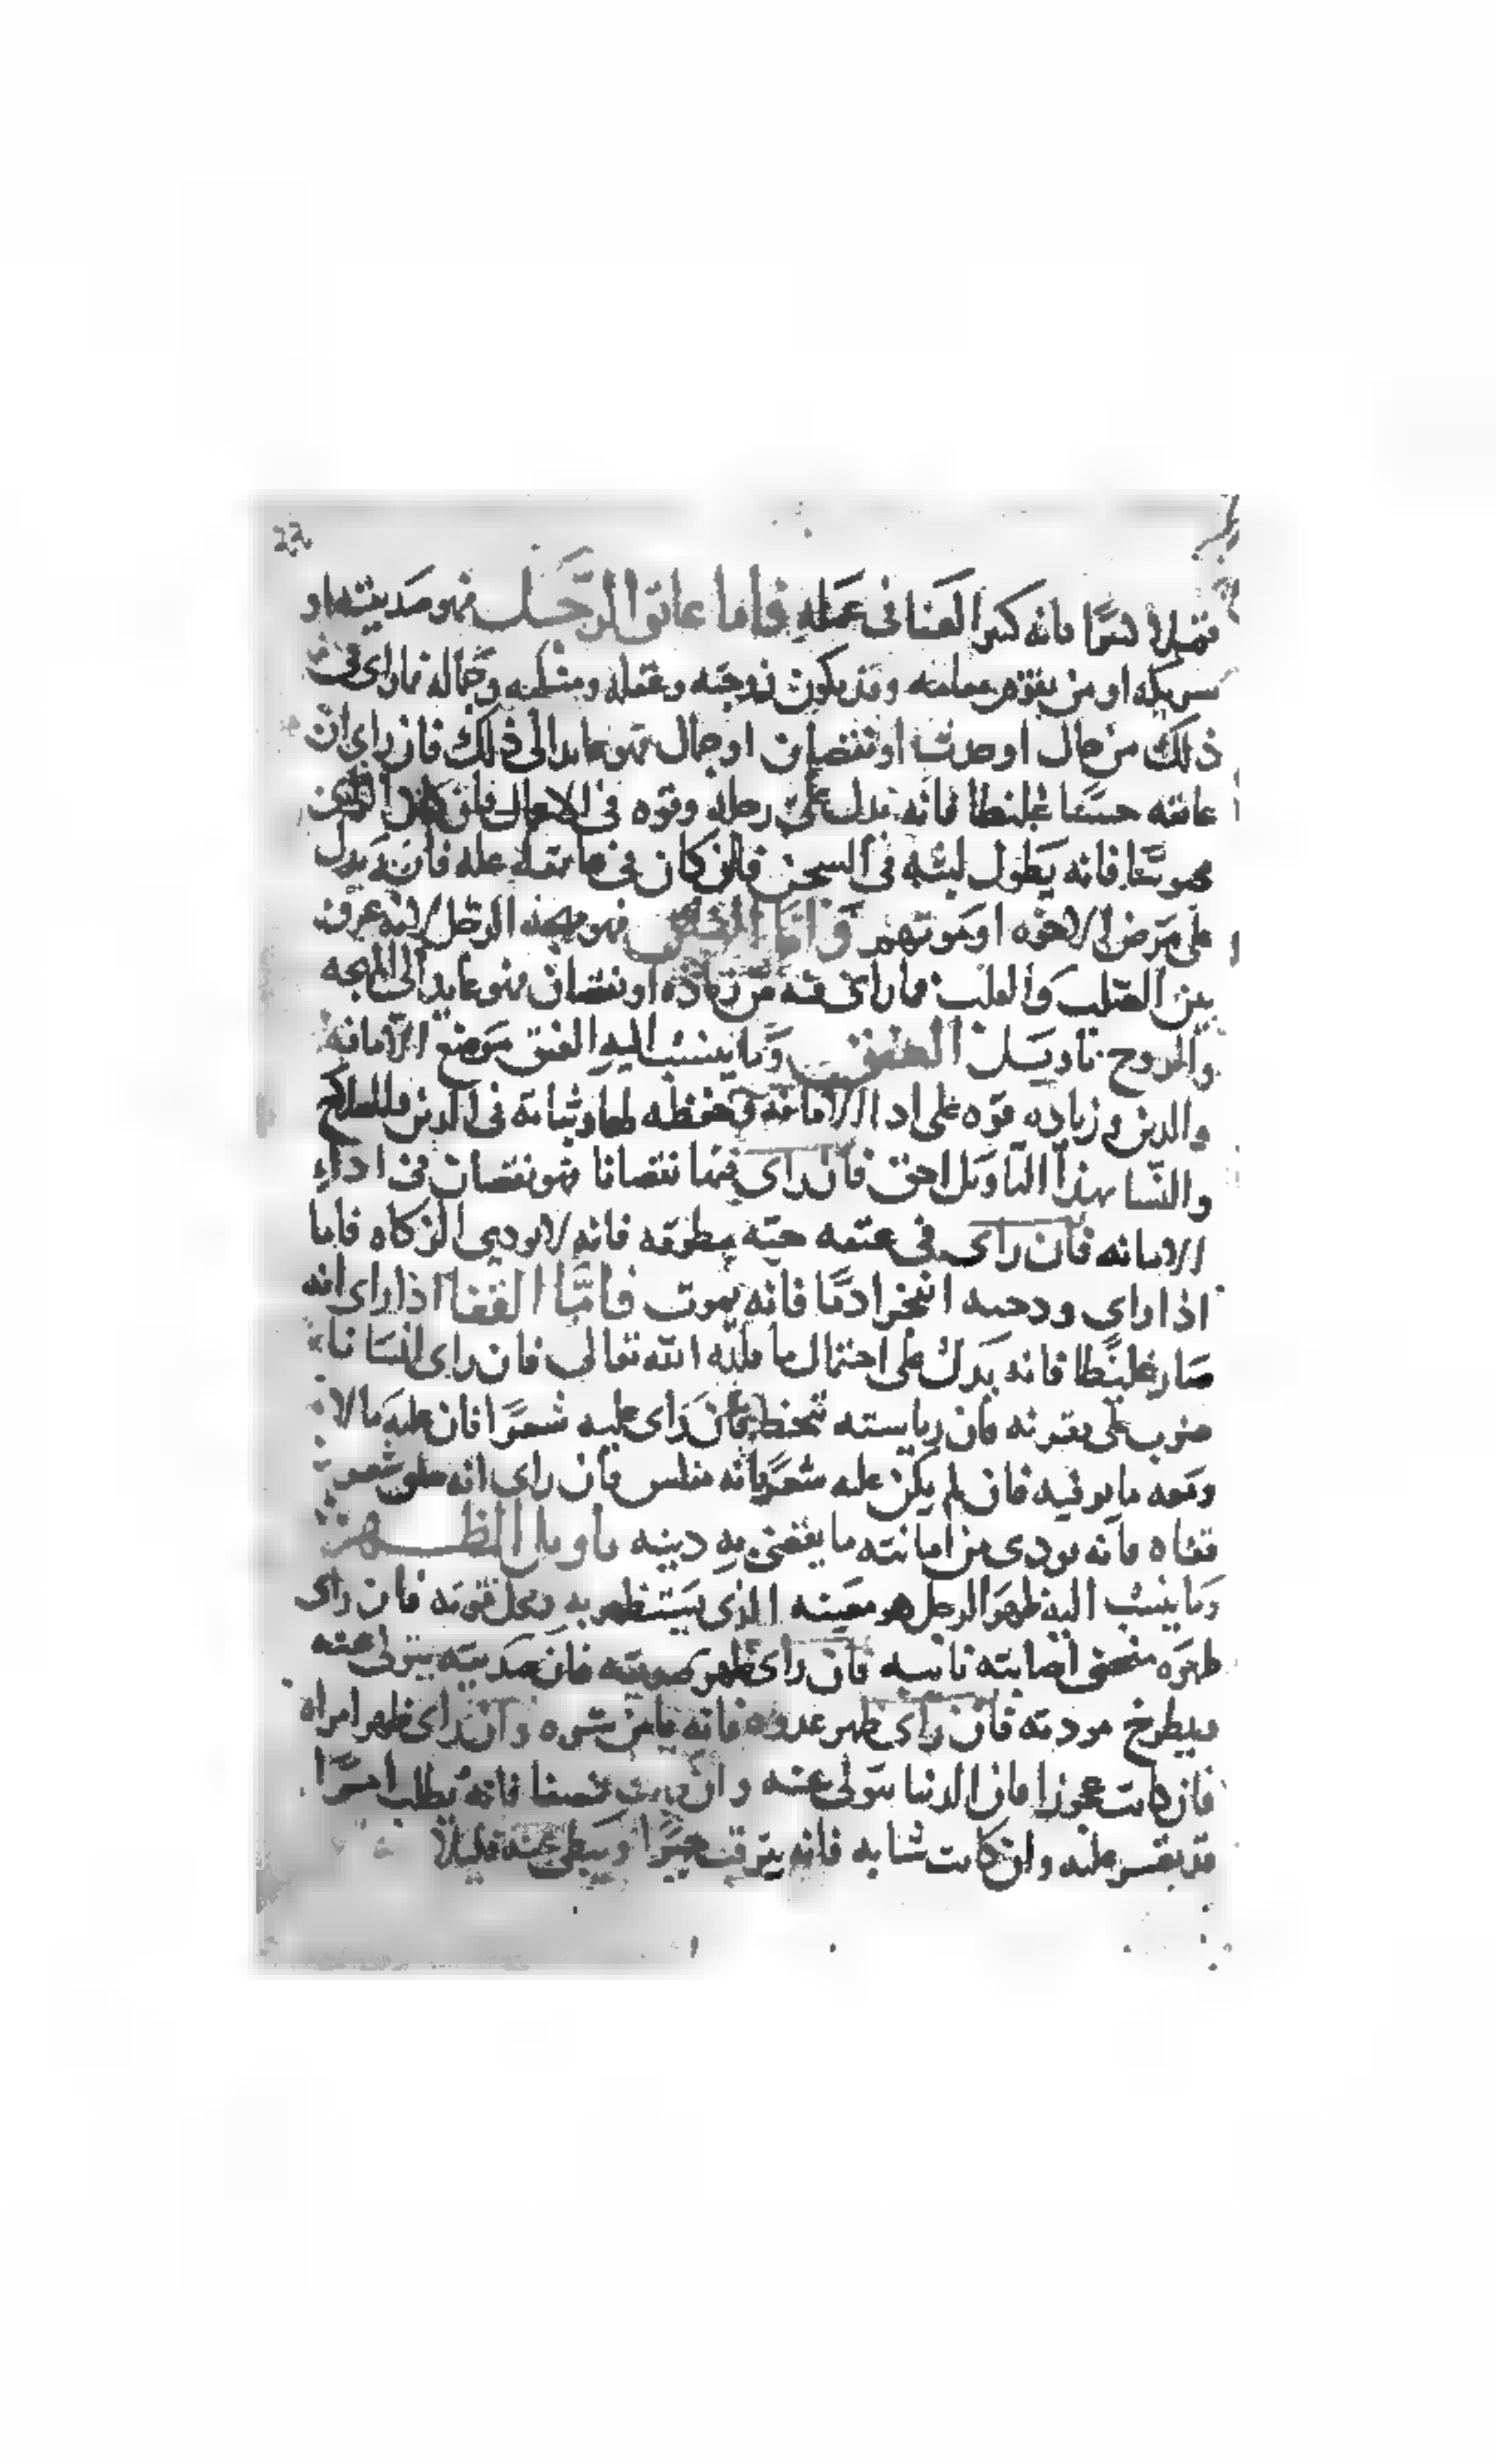 فانه كثير العنا في عمله فاما عاتق الرجل فهو صديقه او
شريكه او من يقوم مقامه وقد يكون زوجته وعقله ومنطقه وجماله فما راى في
ذلك من حال او حدث او نقصان او جمال فهو عايد الى ذلك فان راى ان
عاتقه حسنا غليظا فانه يدل على رجله وقوه في الاحوال فان كان الذي
محبوسا فانه يطول لبثه في السجن فان كان في عاتقه عله فانه يدل
على مرض الاخوه او موتهم واما فهو الرجل لانه عرف
بين الصلب والقلب فما راى فيه من زياده او نقصان فهو عايد الى
والروح تاويل العنق وما ينسب اليه العنق موضع الامانه
والدين وزياده قوه على ادا الامانه في حفظه لها وثباته في الدين
والنسا بهذا التاويل احق فان راى فيها نقصانا فهو نقصان في اداء
الامانه فان راى في عنقه حيه مطوقه فانه لا يودي الزكاه فاما
اذا راى ودجيه انفجرا دما فانه يموت فاما القفا اذا راى انه
صار غليظا فانه يدل على احتمال ما قلده الله تعالى فان راى انسانا
ضرب على فان رياسته فان راى عليه شعرا فان عليه مالا
ومعه ما يوفيه فان لم يكن عليه شعرا فانه مفلس فان راى انه حلق شعر
قفاه فانه يودي من امانته ما يقضي به دينه تاويل الظهر
وما ينسب اليه ظهر الرجل هو معينه الذي يستظهر به ومحل قوته فان راى
ظهره منحنى اصابته نايبه فان راى ظهر صديقه فان صديقه يتولى عنه
ويطرح مودته فان راى ظهر عدوه فانه يامن شره وان راى ظهر امراه
فان كانت عجوزا فان الدنيا تتولى عنه وان كانت نصفا فانه يطلب امرا
قد تعسر عليه وان كانت شابه فانه يترقب خيرا ويبطى عنه قليلا